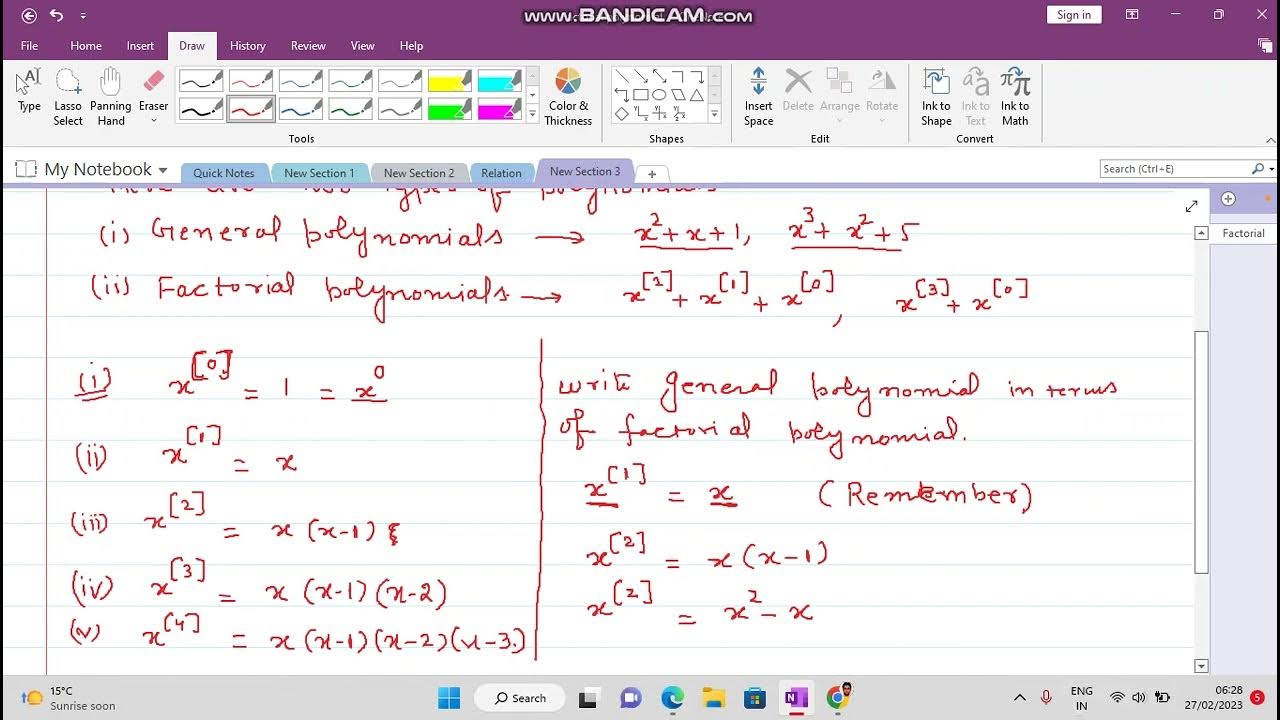 www.BANDICAM.com
Sign in
File Home Insert Draw History Review View Help
Type Lasso Select Panning Hand Eraser Color & Thickness Insert Space Delete Arrange Rotate Ink to Shape Ink to Text Ink to Math
Tools Shapes Edit Convert
My Notebook Quick Notes New Section 1 New Section 2 Relation New Section 3 Search (Ctrl+E)
types of polynomials
(i) General polynomials → x²+x+1, x³+x²+5
Factorial
(ii) Factorial polynomials → x^[2] + x^[1] + x^[0], x^[3] + x^[0]
(i) x^[0] = 1 = x^0
(ii) x^[1] = x
(iii) x^[2] = x(x-1)
(iv) x^[3] = x(x-1)(x-2)
(v) x^[4] = x(x-1)(x-2)(x-3.)
write general polynomial in terms
of factorial polynomial.
x^[1] = x (Remember)
x^[2] = x(x-1)
x^[2] = x²-x
15°C
Sunrise soon
Search
ENG
IN
06:28
27/02/2023
5